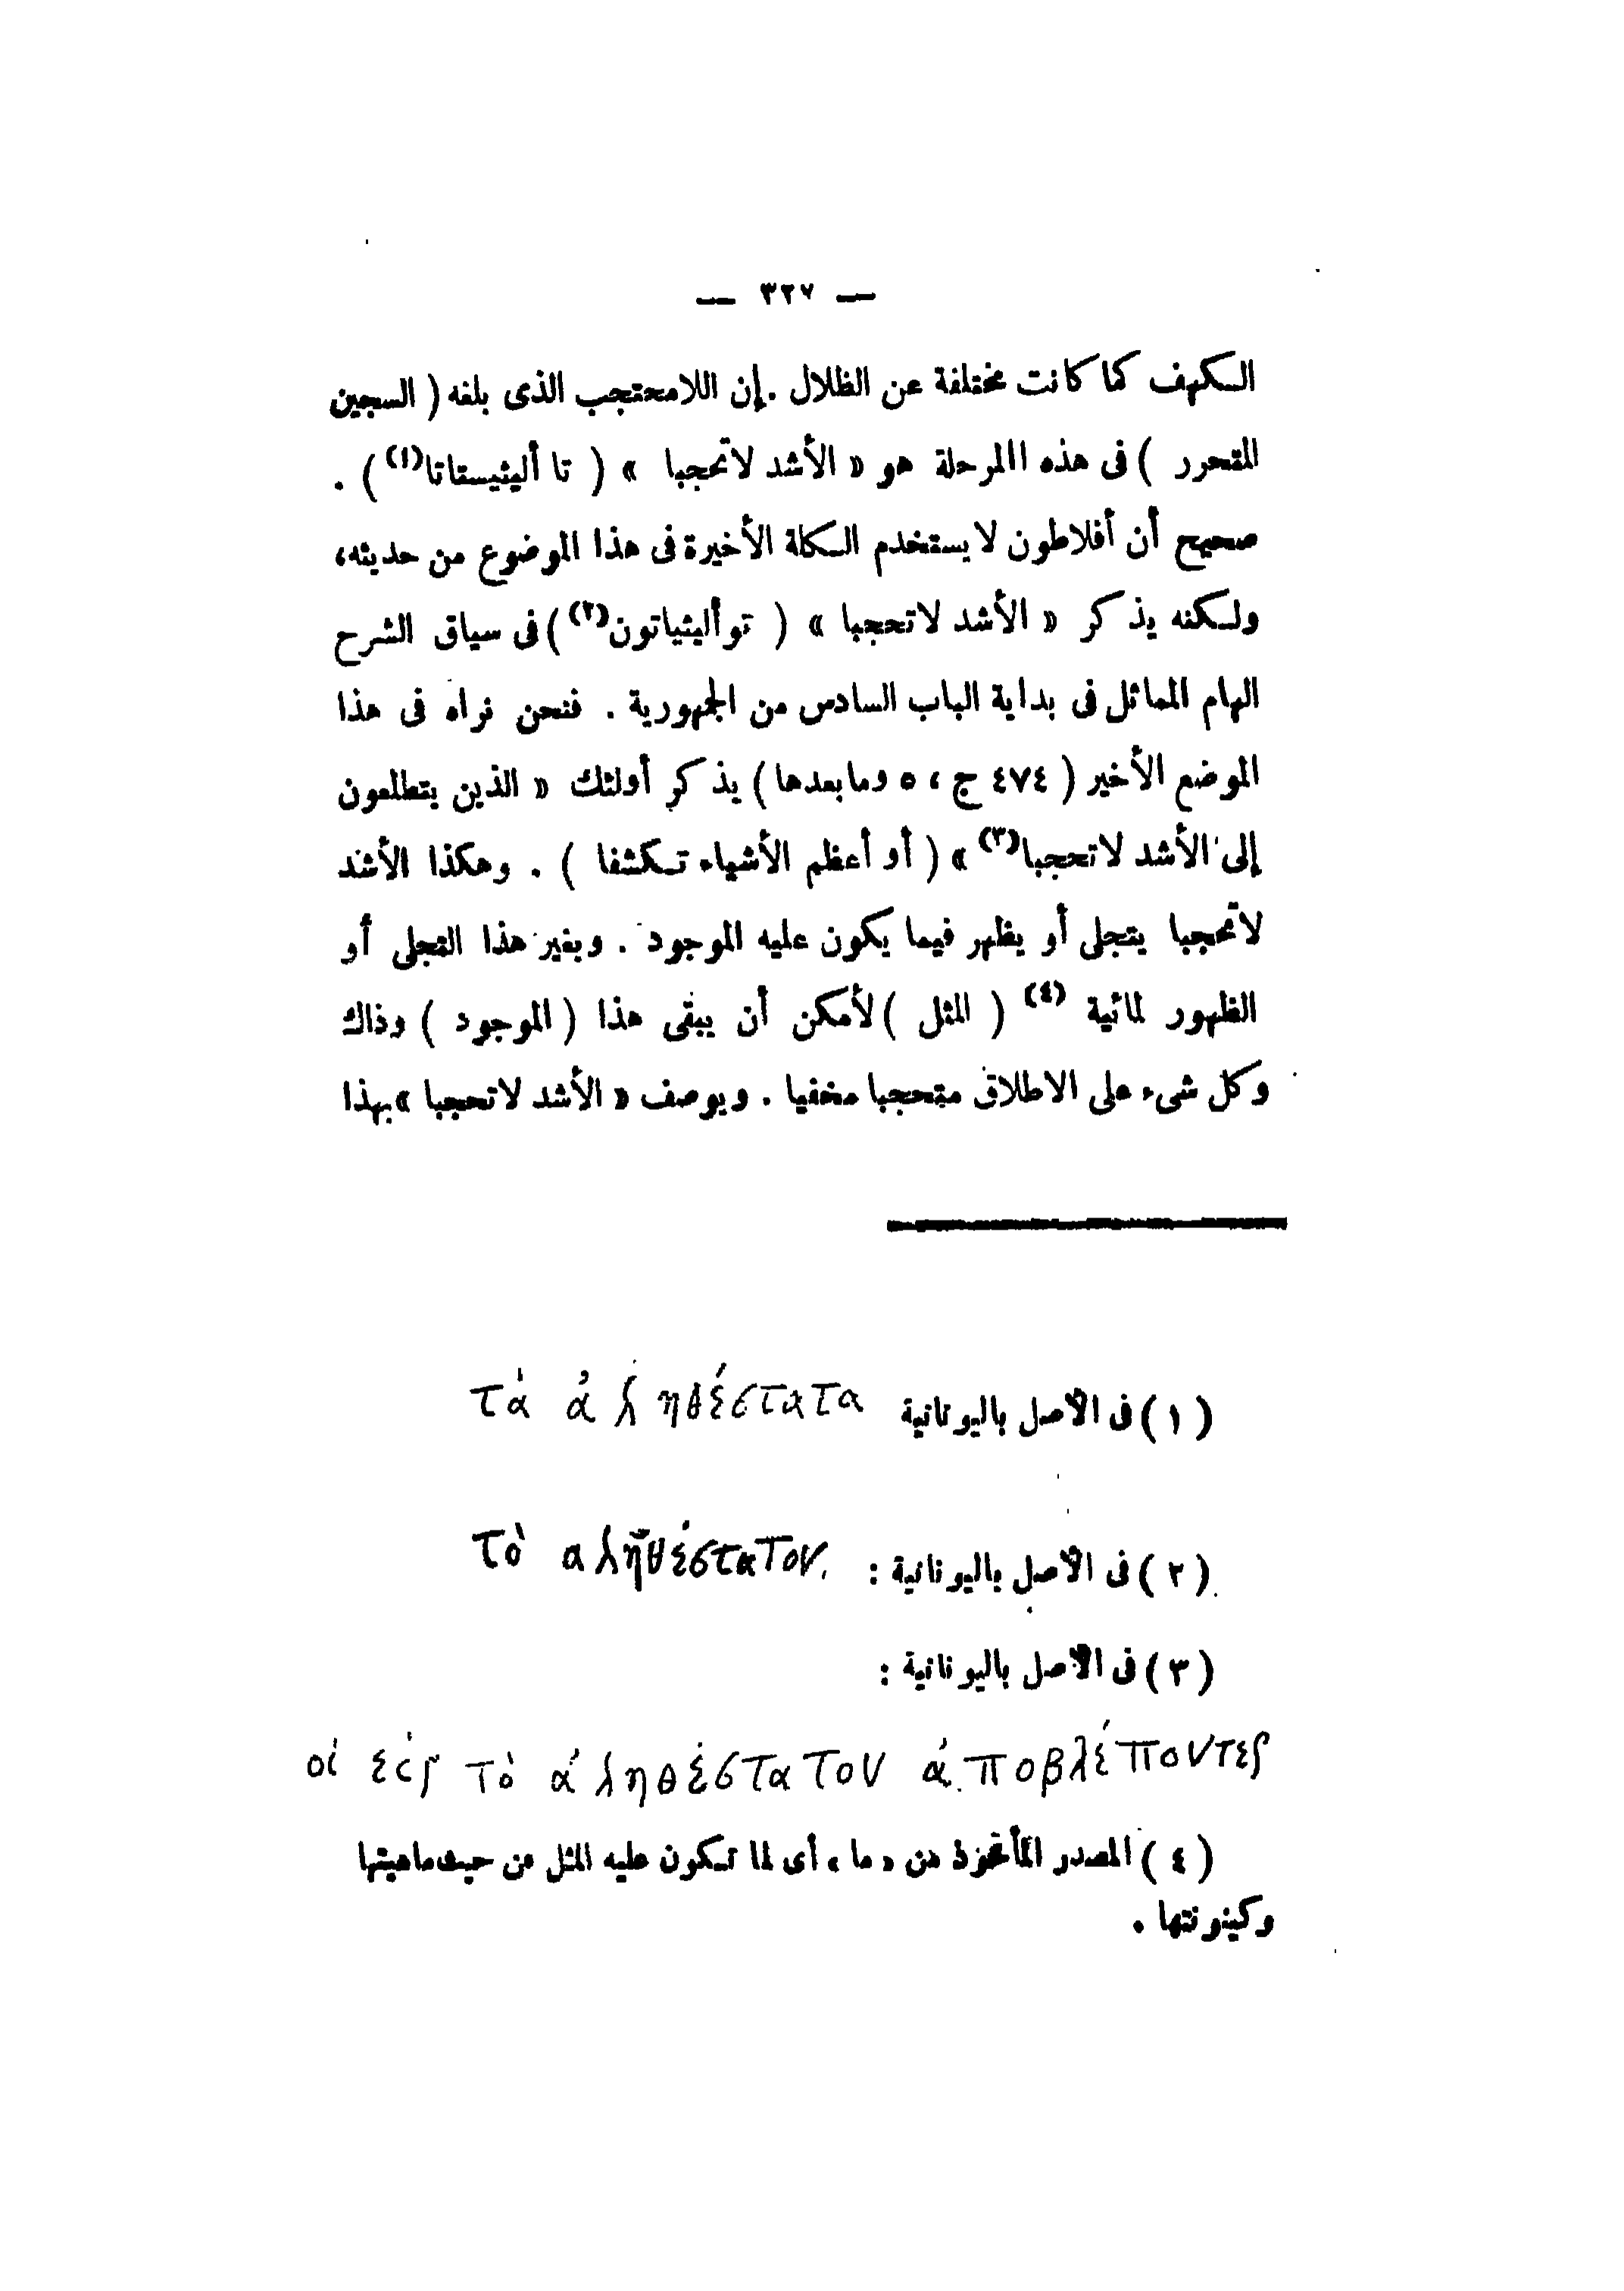 — ٣٢٧ —
الكهف كما كانت مختلفة عن الظلال . إن اللامحتجب الذى بلغه ( السجين
المتحرر ) فى هذه االمرحلة هو « الأشد لاتحجبا » ( تا أليثيستاتا(١) ) .
صحيح أن أفلاطون لا يستخدم الكلمة الأخيرة فى هذا الموضوع من حديثه،
ولكنه يذكر « الأشد لاتحجبا » ( توأليثياتون(٢) ) فى سياق الشرح
الهام المماثل فى بداية الباب السادس من الجمهورية . فنحن نراه فى هذا
الموضع الأخير ( ٤٧٤ ج ، ٥ وما بعدها ) يذكر أولئك « الذين يتطلعون
إلى الأشد لاتحجبا(٣) » ( أو أعظم الأشياء تكشفا ) . وهكذا الأشد
لاتحجبا يتجلى أو يظهر فيما يكون عليه الموجود . وبغير هذا التجلى أو
الظهور لمائية (٤) ( المثل ) لأمكن أن يبقى هذا ( الموجود ) وذاك
وكل شىء على الاطلاق متحجبا مخفيا . ويوصف « الأشد لاتحجبا » بهذا
(١) فى الأصل باليونانية τὰ ἀληθέστατα
(٢) فى الأصل باليونانية : τὸ αληθέστατον
(٣) فى الأصل باليونانية :
οἱ εἰς τὸ ἀληθέστατον ἀποβλέποντες
(٤) المصدر المأخوذ من « ما » أى لما تكون عليه المثل من حيث ماهيتها
وكينونتها .